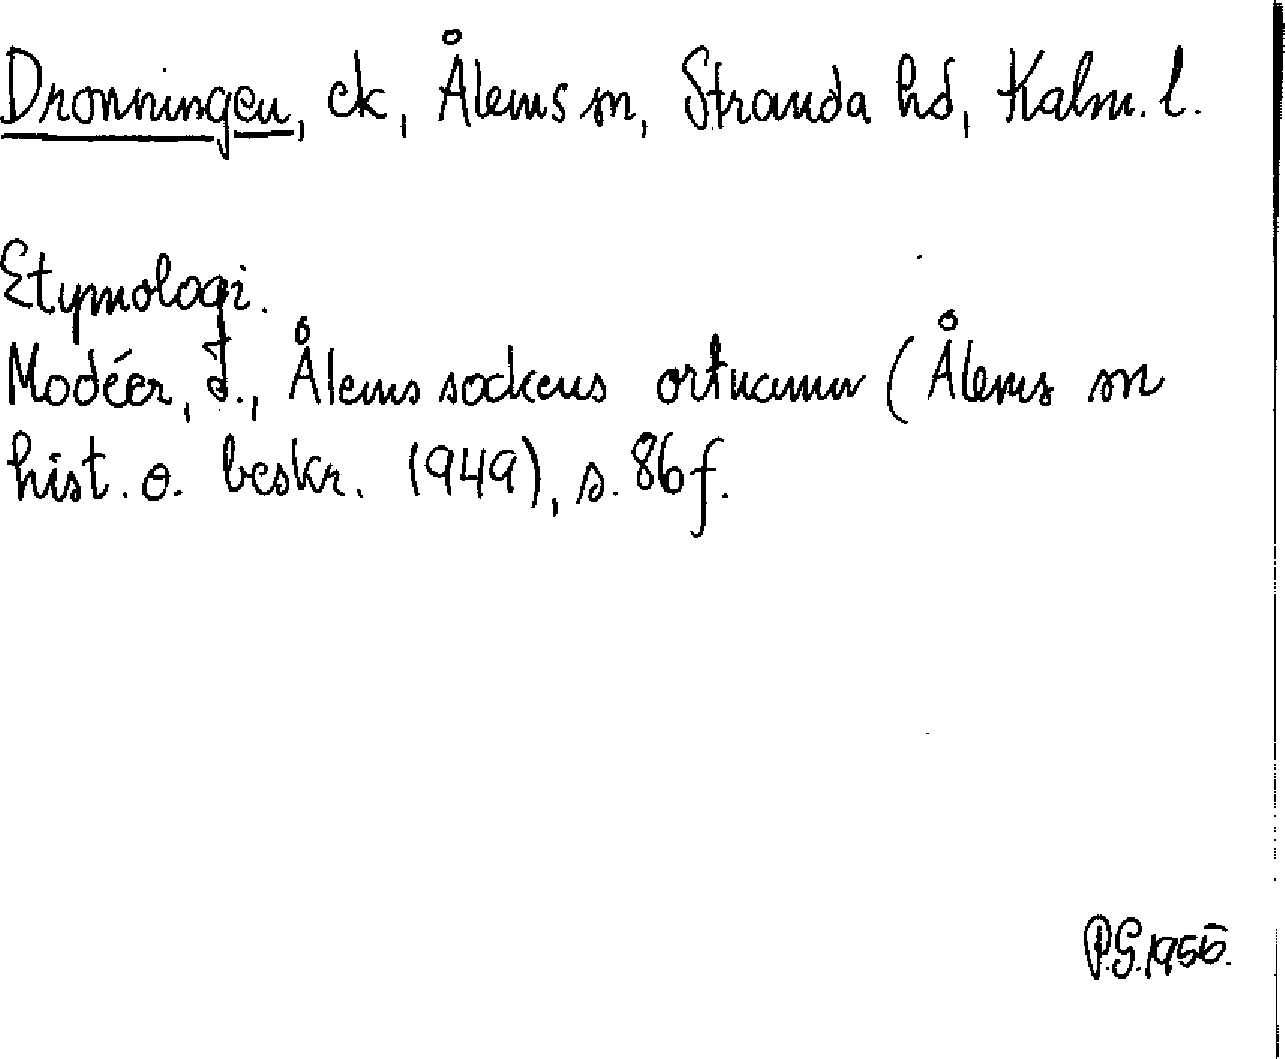 Dronningen, ck, Ålems sn, Stranda hd, Kalm. l.
Etymologi.
Modéer, I., Ålems sockens ortnamn (Ålems sn
hist. o. beskr. 1949), s. 86 f.
P.G. 1955.